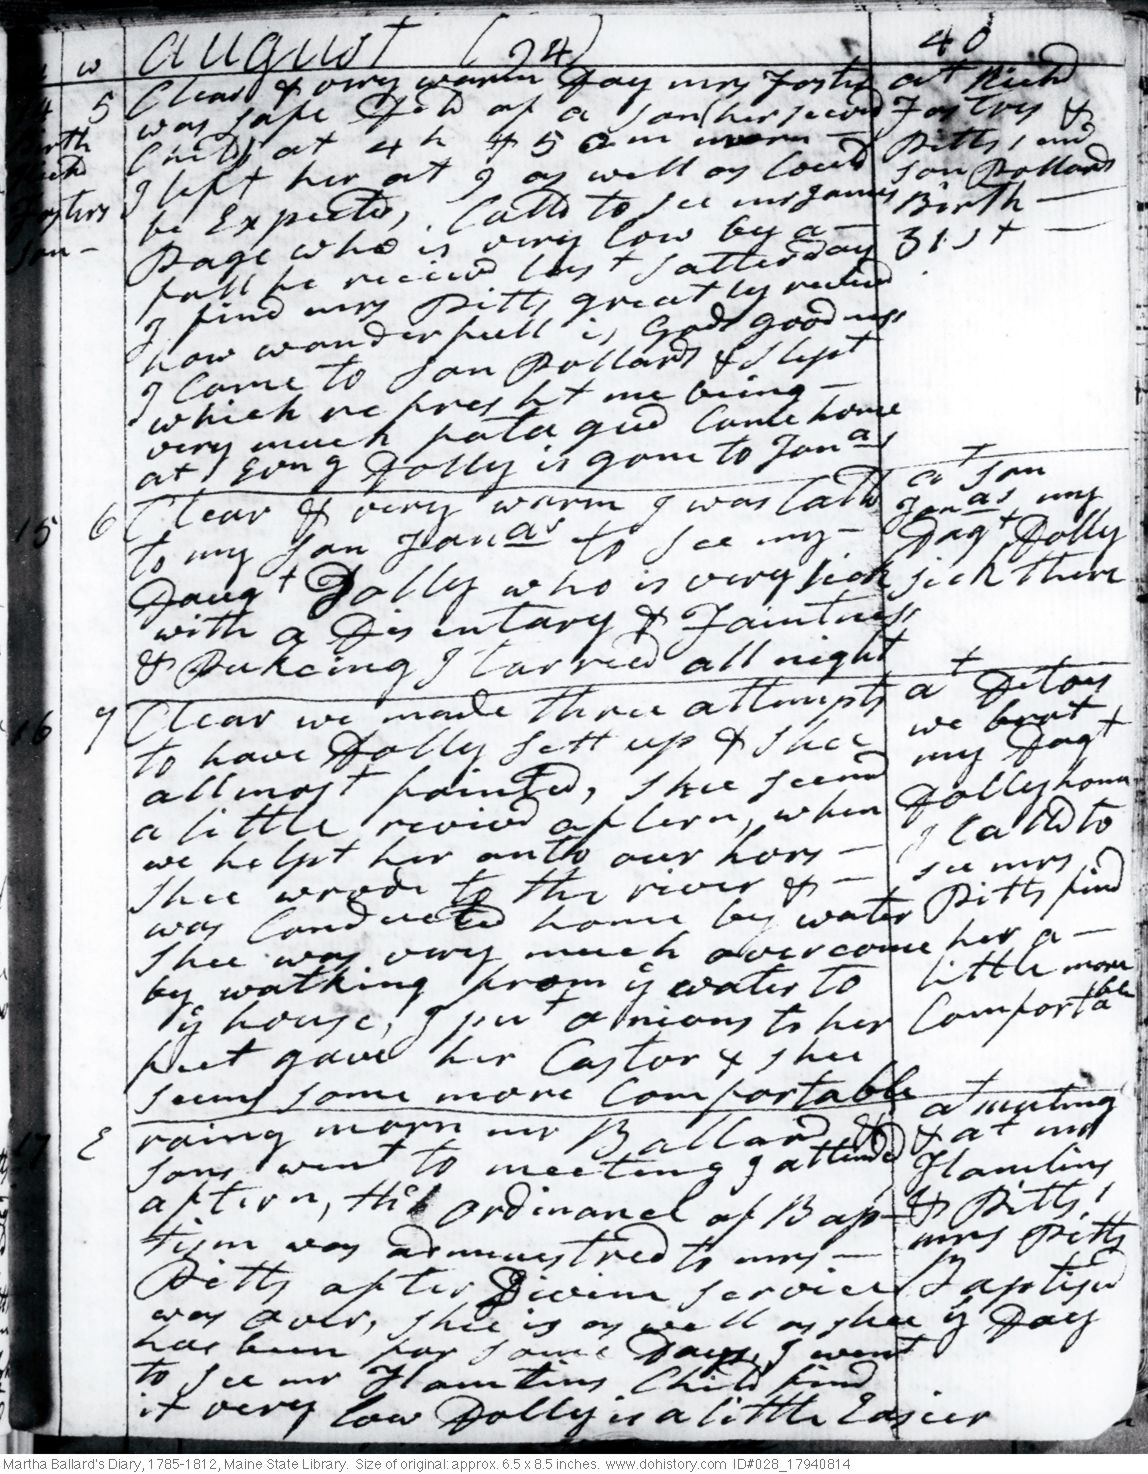 w august (94) 40
14 5 Clear & very warm Day mrs Foster
was safe Deld of a son (her second
Child) at 4 h & 50 m morn
I left her at 7 as well as Could
be Expected, Calld to see mr James
Page who is very low by a —
fall he receivd last Satterday
I find mrs Pitts greatly revivd
how wonderfull is Gods goodness
I Came to son Pollards & slept
which refresht me being —
very much fatagud Came home
at Evng Dolly is gone to Jonas
Birth
Richd
Fosters
son —
at Richd
Fosters &
Pitts, and
son Pollards
Birth —
31st —
15 6 Clear & very warm I was Calld
to my son Jonas to see my —
Daugt Dolly who is very sick
with a Disentary & Faintness
& Pukeing I tarried all night
at son
Jonas my
Dagt Dolly
sick there
16 7 Clear we made three attempts
to have Dolly sett up & shee
allmost fainted, shee seemd
a little revivd aftern, when
we helpt her onto our hors —
shee wrode to the river & —
was Conducted home by water
shee was very much overcome
by walking from ye water to
ye house, I put onions to her
feet gave her Castor & shee
seems some more Comfortable
at Ditoes
we brot
my Dagt
Dolly home
I Calld to
see mrs
Pitts find
her a —
little more
Comfortable
17 E raing morn mr Ballard &
sons went to meeting I attended
aftern, the ordinance of Bap-
tism was admministred to mrs —
Pitts after Divine service
was over, shee is as well as shee
has been for some Days, I went
to see mr Hamlins Child find
it very low Dolly is a little Easier
at meeting
& at mr
Hamlins
& Pitts,
mrs Pitts
Baptisd
ye Day
Martha Ballard's Diary, 1785-1812, Maine State Library. Size of original: approx. 6.5 x 8.5 inches. www.dohistory.com ID#028_17940814